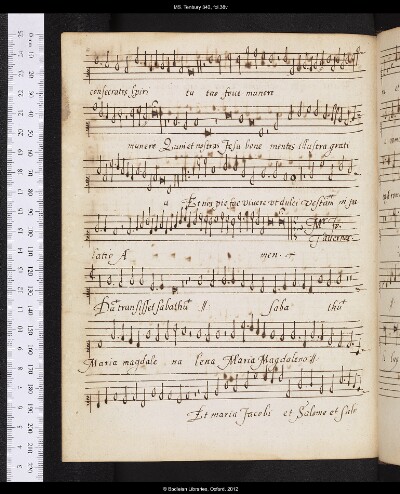 MS. Tenbury 342, fol.38v
consecratos spiri tu tuo fout munere
munere Quam et nostras Jesu bone mentes illustra grati
a Et nos pie fac vivere ut dulci vestitu in
latie A men.
Mr Jo.
Taverner
Dū transisset sabathū
saba thū
Maria magdale na lena Maria Magdalena
Et maria Jacobi et Salome et Salo
© Bodleian Libraries, Oxford, 2012